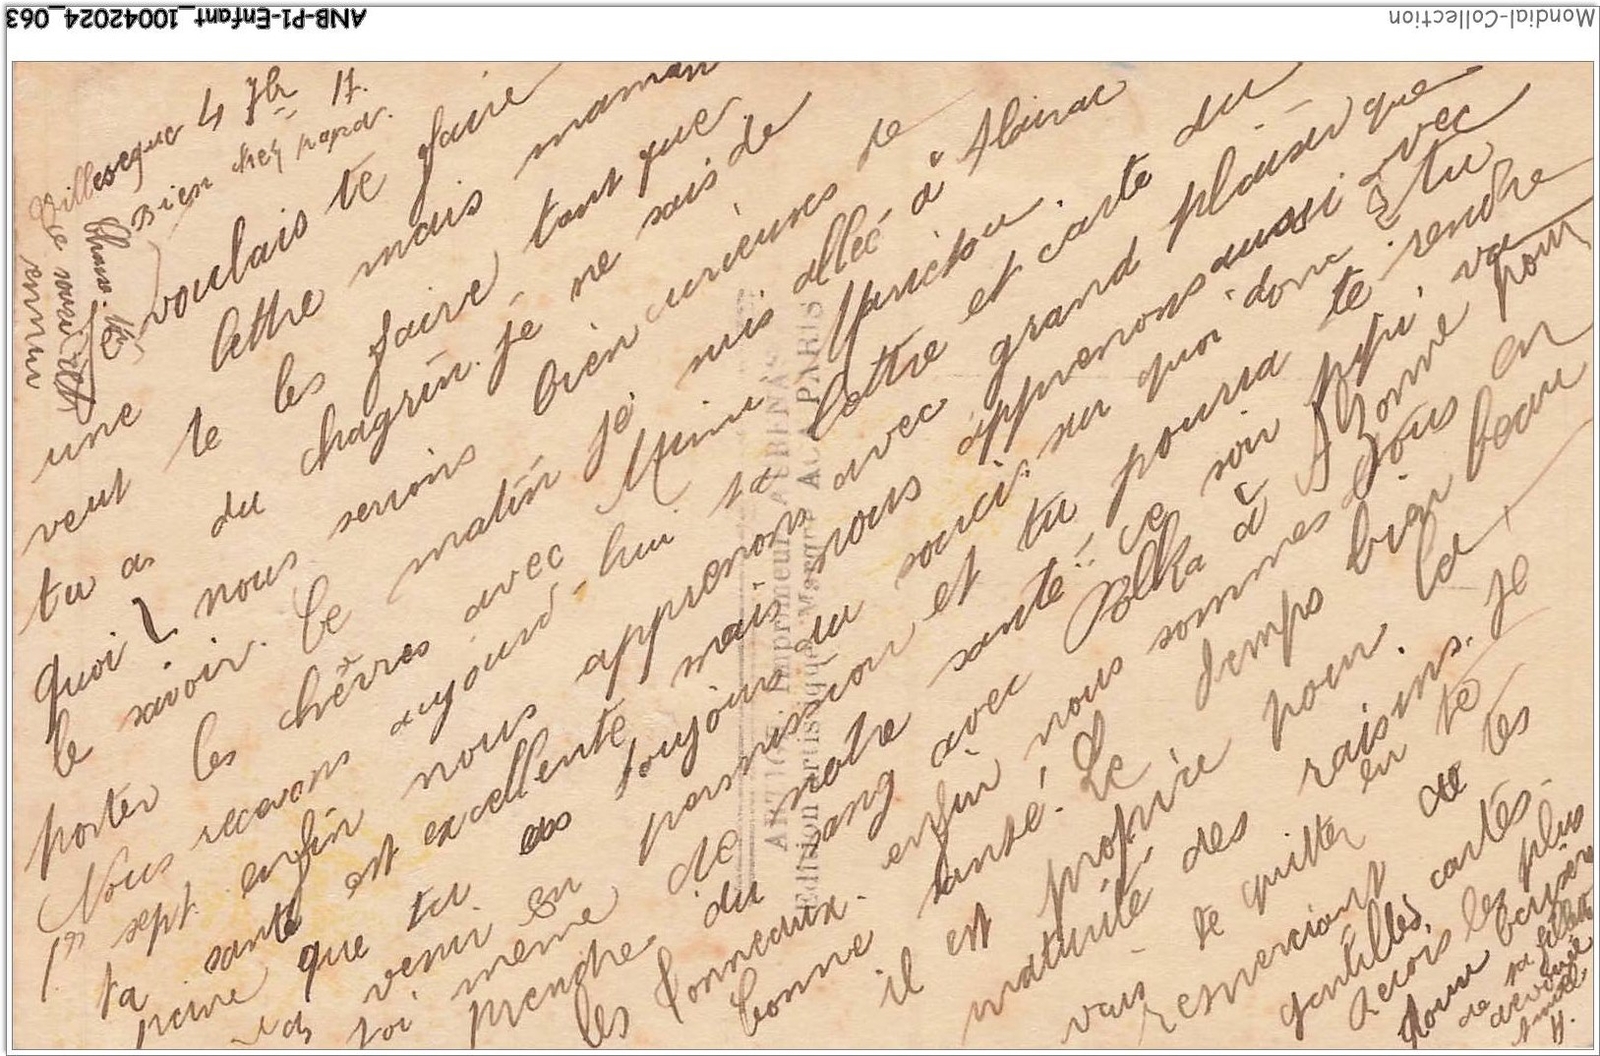 Villesèque 4 7bre 17.
Bien cher papa.
voulais te faire
une lettre mais maman
veut te les faire tant que
tu as du chagrin. je ne sais de
quoi nous serions bien curieuses de
le savoir. Ce matin je suis allée à Alairac
porter les chèvres avec Mimi
Nous recevons aujourd-hui ta lettre et carte du
1er sept. enfin nous apprenons avec grand plaisir que
ta santé est excellente mais nous apprenons aussi avec
peine que tu as toujours du souci. sur quoi donc
venir en permission et tu pourra te rendre
toi même de notre santé. Ce soir pepi va
prendre du sang avec Polka à Alzonne pour
les tonneaux. enfin nous sommes tous en
bonne santé. Le temps bien beau
il est propice pour la
maturité des raisins. Je
vais te quitter en te
remerciant de tes
gentilles cartes.
Reçois les plus
doux baisers
de ta fillette
dévouée
ANB-P1-Enfant_10042024_063
Mondial-Collection
Imprimeur
Edition Artistique Marque PARIS